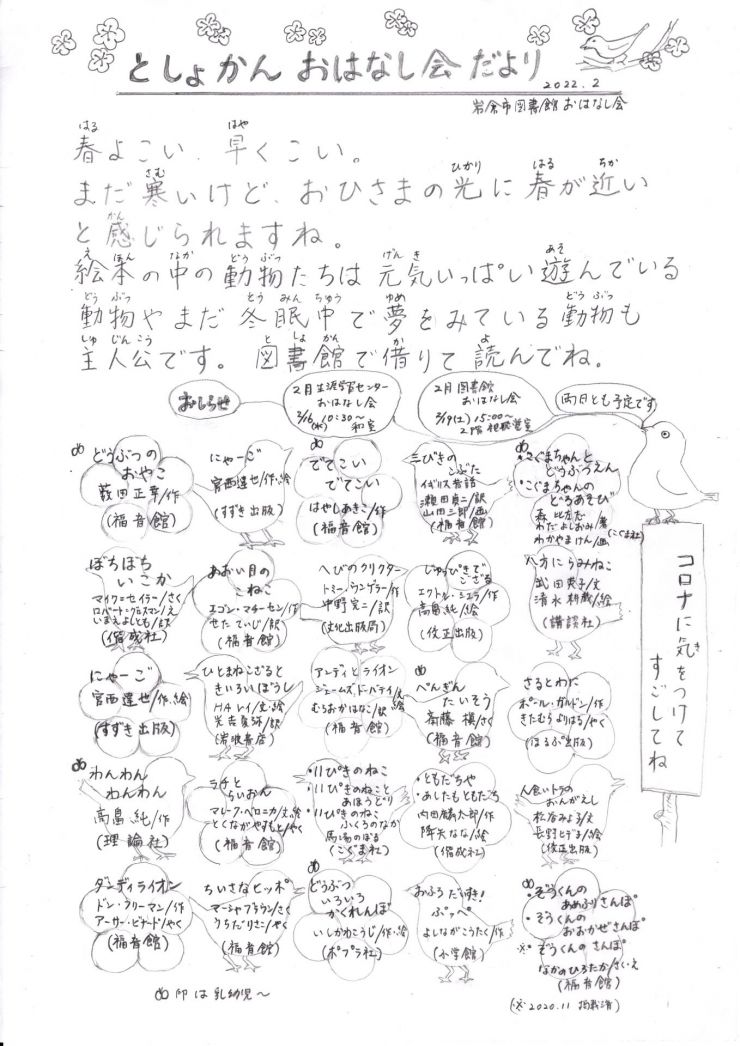 としょかん おはなし会 だより
2022.2
岩倉市図書館おはなし会
春よこい、早くこい。
まだ寒いけど、おひさまの光に春が近い
と感じられますね。
絵本の中の動物たちは元気いっぱい遊んでいる
動物やまだ冬眠中で夢をみている動物も
主人公です。図書館で借りて読んでね。
おしらせ
2月生涯学習センター
おはなし会
2/16(水) 10:30〜
和室
2月図書館
おはなし会
2/19(土) 15:00〜
2階視聴覚室
両日とも予定です
コロナに気をつけて
すごしてね
め どうぶつの
おやこ
薮内正幸/作
(福音館)
にゃーご
宮西達也/作・絵
(すずき出版)
め
でてこい
でてこい
はやしあきこ/作
(福音館)
三びきの
こぶた
イギリス昔話
瀬田貞二/訳
山田三郎/画
(福音館)
め
・こぐまちゃんと
どうぶつえん
・こぐまちゃんの
どろあそび
森比左志
わだよしおみ/著
わかやまけん/画
(こぐま社)
ぼちぼち
いこか
マイク=セイラー/さく
ロバート=グロスマン/え
いまえよしとも/訳
(偕成社)
あおい目の
こねこ
エゴン・マチーセン/作
せたていじ/訳
(福音館)
へびのクリクター
トミー・ウンゲラー/作
中野完二/訳
(文化出版局)
じゅっぴきで
ござる
エクトル・シエラ/作
高畠純/絵
(佼正出版)
八方にらみねこ
武田英子/文
清水耕蔵/絵
(講談社)
にゃーご
宮西達也/作・絵
(すずき出版)
ひとまねこざると
きいろいぼうし
H.A.レイ/文・絵
光吉夏弥/訳
(岩波書店)
アンディとライオン
ジェームズ・ドーハーティ/文・絵
むらおかはなこ/訳
(福音館)
め
ぺんぎん
たいそう
斎藤槙/さく
(福音館)
さるとわに
ポール・ガルドン/作
きたむらよりはる/やく
(ほるぷ出版)
め わんわん
わんわん
高畠純/作
(理論社)
ラチと
らいおん
マレーク・ベロニカ/文・絵
とくながやすもと/やく
(福音館)
・11ぴきのねこ
・11ぴきのねこと
あほうどり
・11ぴきのねこ
ふくろのなか
馬場のぼる
(こぐま社)
・ともだちや
・あしたもともだち
内田麟太郎/作
降矢なな/絵
(偕成社)
人食いトラの
おんがえし
松谷みよ子/文
長野ヒデ子/絵
(佼正出版)
ダンディライオン
ドン・フリーマン/作
アーサー・ビナード/やく
(福音館)
ちいさなヒッポ
マーシャ・ブラウン/さく
うちだりさこ/やく
(福音館)
め
どうぶつ
いろいろ
かくれんぼ
いしかわこうじ/作・絵
(ポプラ社)
おふろだいすき!
ぷっぺ
よしながこうたく/作
(小学館)
め
・ぞうくんの
あめふりさんぽ
・ぞうくんの
おおかぜさんぽ
※ぞうくんのさんぽ
なかのひろたか/さく・え
(福音館)
(※2020.11 掲載済)
め印は乳幼児〜